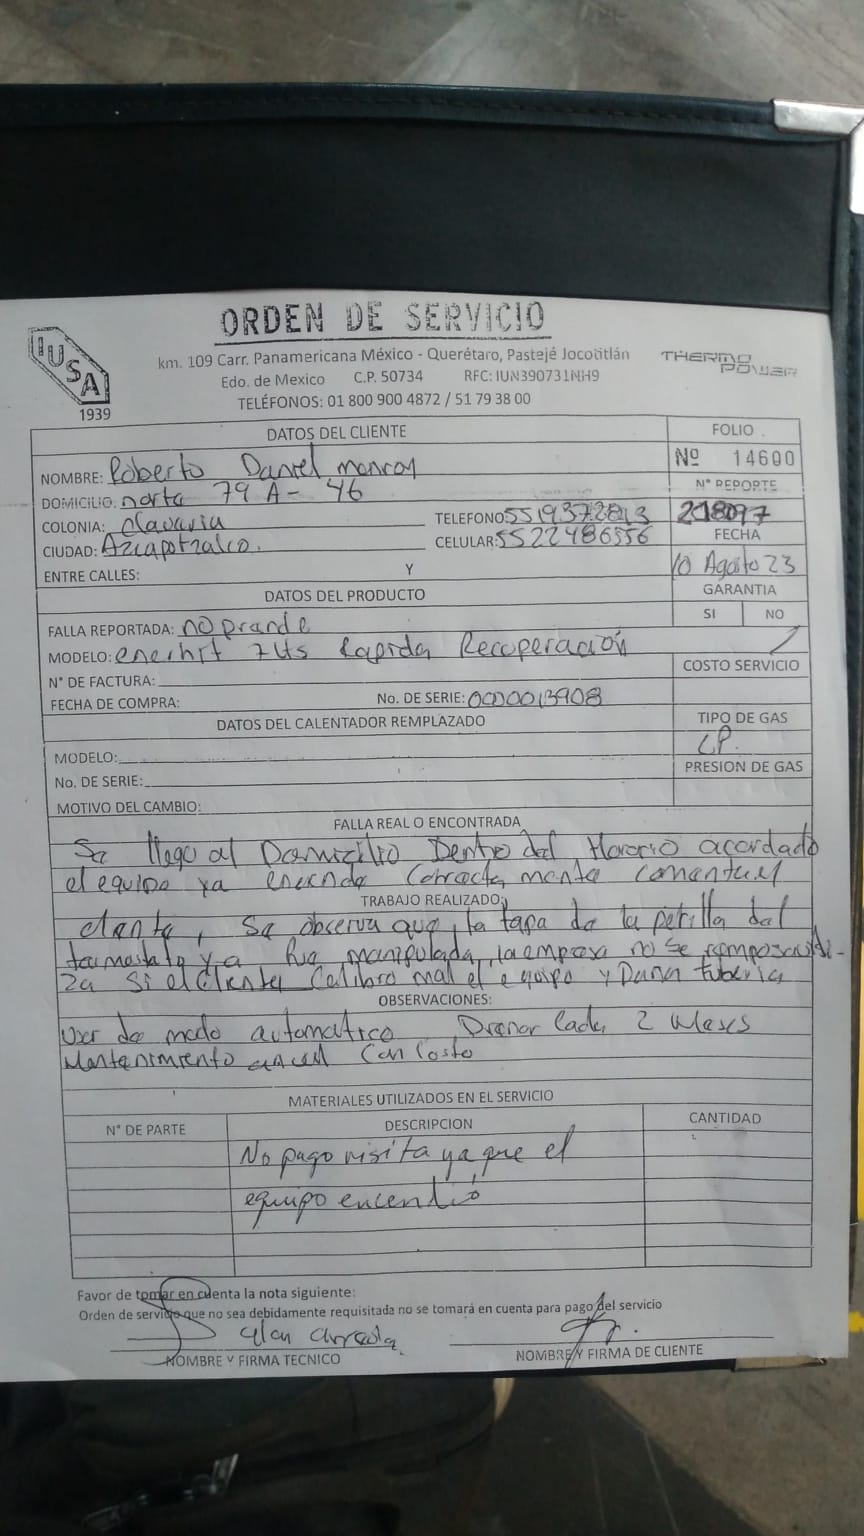 ORDEN DE SERVICIO
IUSA
1939
km. 109 Carr. Panamericana México - Querétaro, Pastejé Jocotitlán
THERMO POWER
Edo. de Mexico C.P. 50734 RFC: IUN390731NH9
TELÉFONOS: 01 800 900 4872 / 51 79 38 00
DATOS DEL CLIENTE FOLIO
NOMBRE: Roberto Daniel monroy Nº 14600
DOMICILIO: norte 79 A - 46 N° REPORTE
COLONIA: clavaria TELEFONO: 5519372813 218097
CIUDAD: Azcapotzalco. CELULAR: 5522486556 FECHA
ENTRE CALLES: Y 10 Agosto 23
DATOS DEL PRODUCTO GARANTIA
FALLA REPORTADA: no prande SI NO
MODELO: enerhit 7 Lts Rapida Recuperación /
N° DE FACTURA: COSTO SERVICIO
FECHA DE COMPRA: No. DE SERIE:
DATOS DEL CALENTADOR REMPLAZADO TIPO DE GAS
MODELO: LP.
No. DE SERIE: PRESION DE GAS
MOTIVO DEL CAMBIO:
FALLA REAL O ENCONTRADA
Se llego al Domicilio Dentro del Horario acordado
el equipo ya enciende correcta mente comenta el
TRABAJO REALIZADO:
cliente, se observa que la tapa de la perilla del
ya fue manipulada, la empresa no se
za si el cliente calibro mal el equipo y Daña tuberia
OBSERVACIONES:
Usar de modo automatico Drenar cada 2 Meses
Mantenimiento anual Con Costo
MATERIALES UTILIZADOS EN EL SERVICIO
N° DE PARTE DESCRIPCION CANTIDAD
No pago visita ya que el
equipo encendió
Favor de tomar en cuenta la nota siguiente:
Orden de servicio que no sea debidamente requisitada no se tomará en cuenta para pago del servicio
NOMBRE Y FIRMA TECNICO NOMBRE Y FIRMA DE CLIENTE